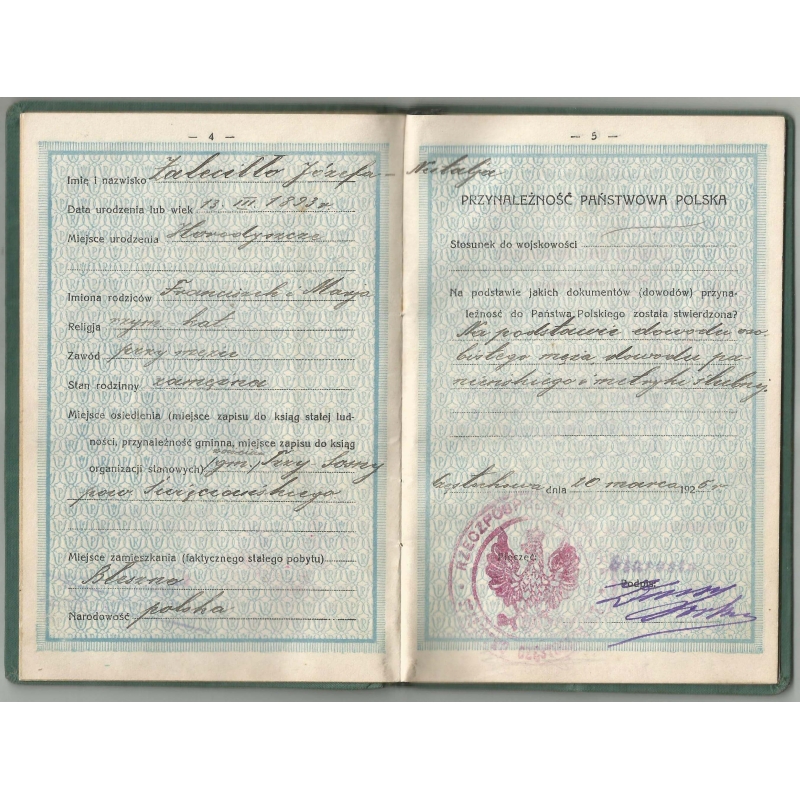 — 4 —
Imię i nazwisko Józefa - Natalja
Data urodzenia lub wiek 13. III. 1893 r
Miejsce urodzenia Horodyszcze
Imiona rodziców Franciszek i Marja
Religja rzym. kat
Zawód przy mężu
Stan rodzinny zamężna
Miejsce osiedlenia (miejsce zapisu do ksiąg stałej lud-
ności, przynależność gminna, miejsce zapisu do ksiąg
organizacji stanowych) (gm.) Trzy
pow. Święciańskiego
Miejsce zamieszkania (faktycznego stałego pobytu)
Błeszno
Narodowość polska
— 5 —
PRZYNALEŻNOŚĆ PAŃSTWOWA POLSKA
Stosunek do wojskowości
Na podstawie jakich dokumentów (dowodów) przyna-
leżność do Państwa Polskiego została stwierdzona?
Na podstawie dowodu oso-
bistego męża dowodu pa-
nieńskiego i metryki ślubnej.
Częstochowa dnia 20 marca 1925 r
RZECZPOSP
Pieczęć
Starosta
Podpis: